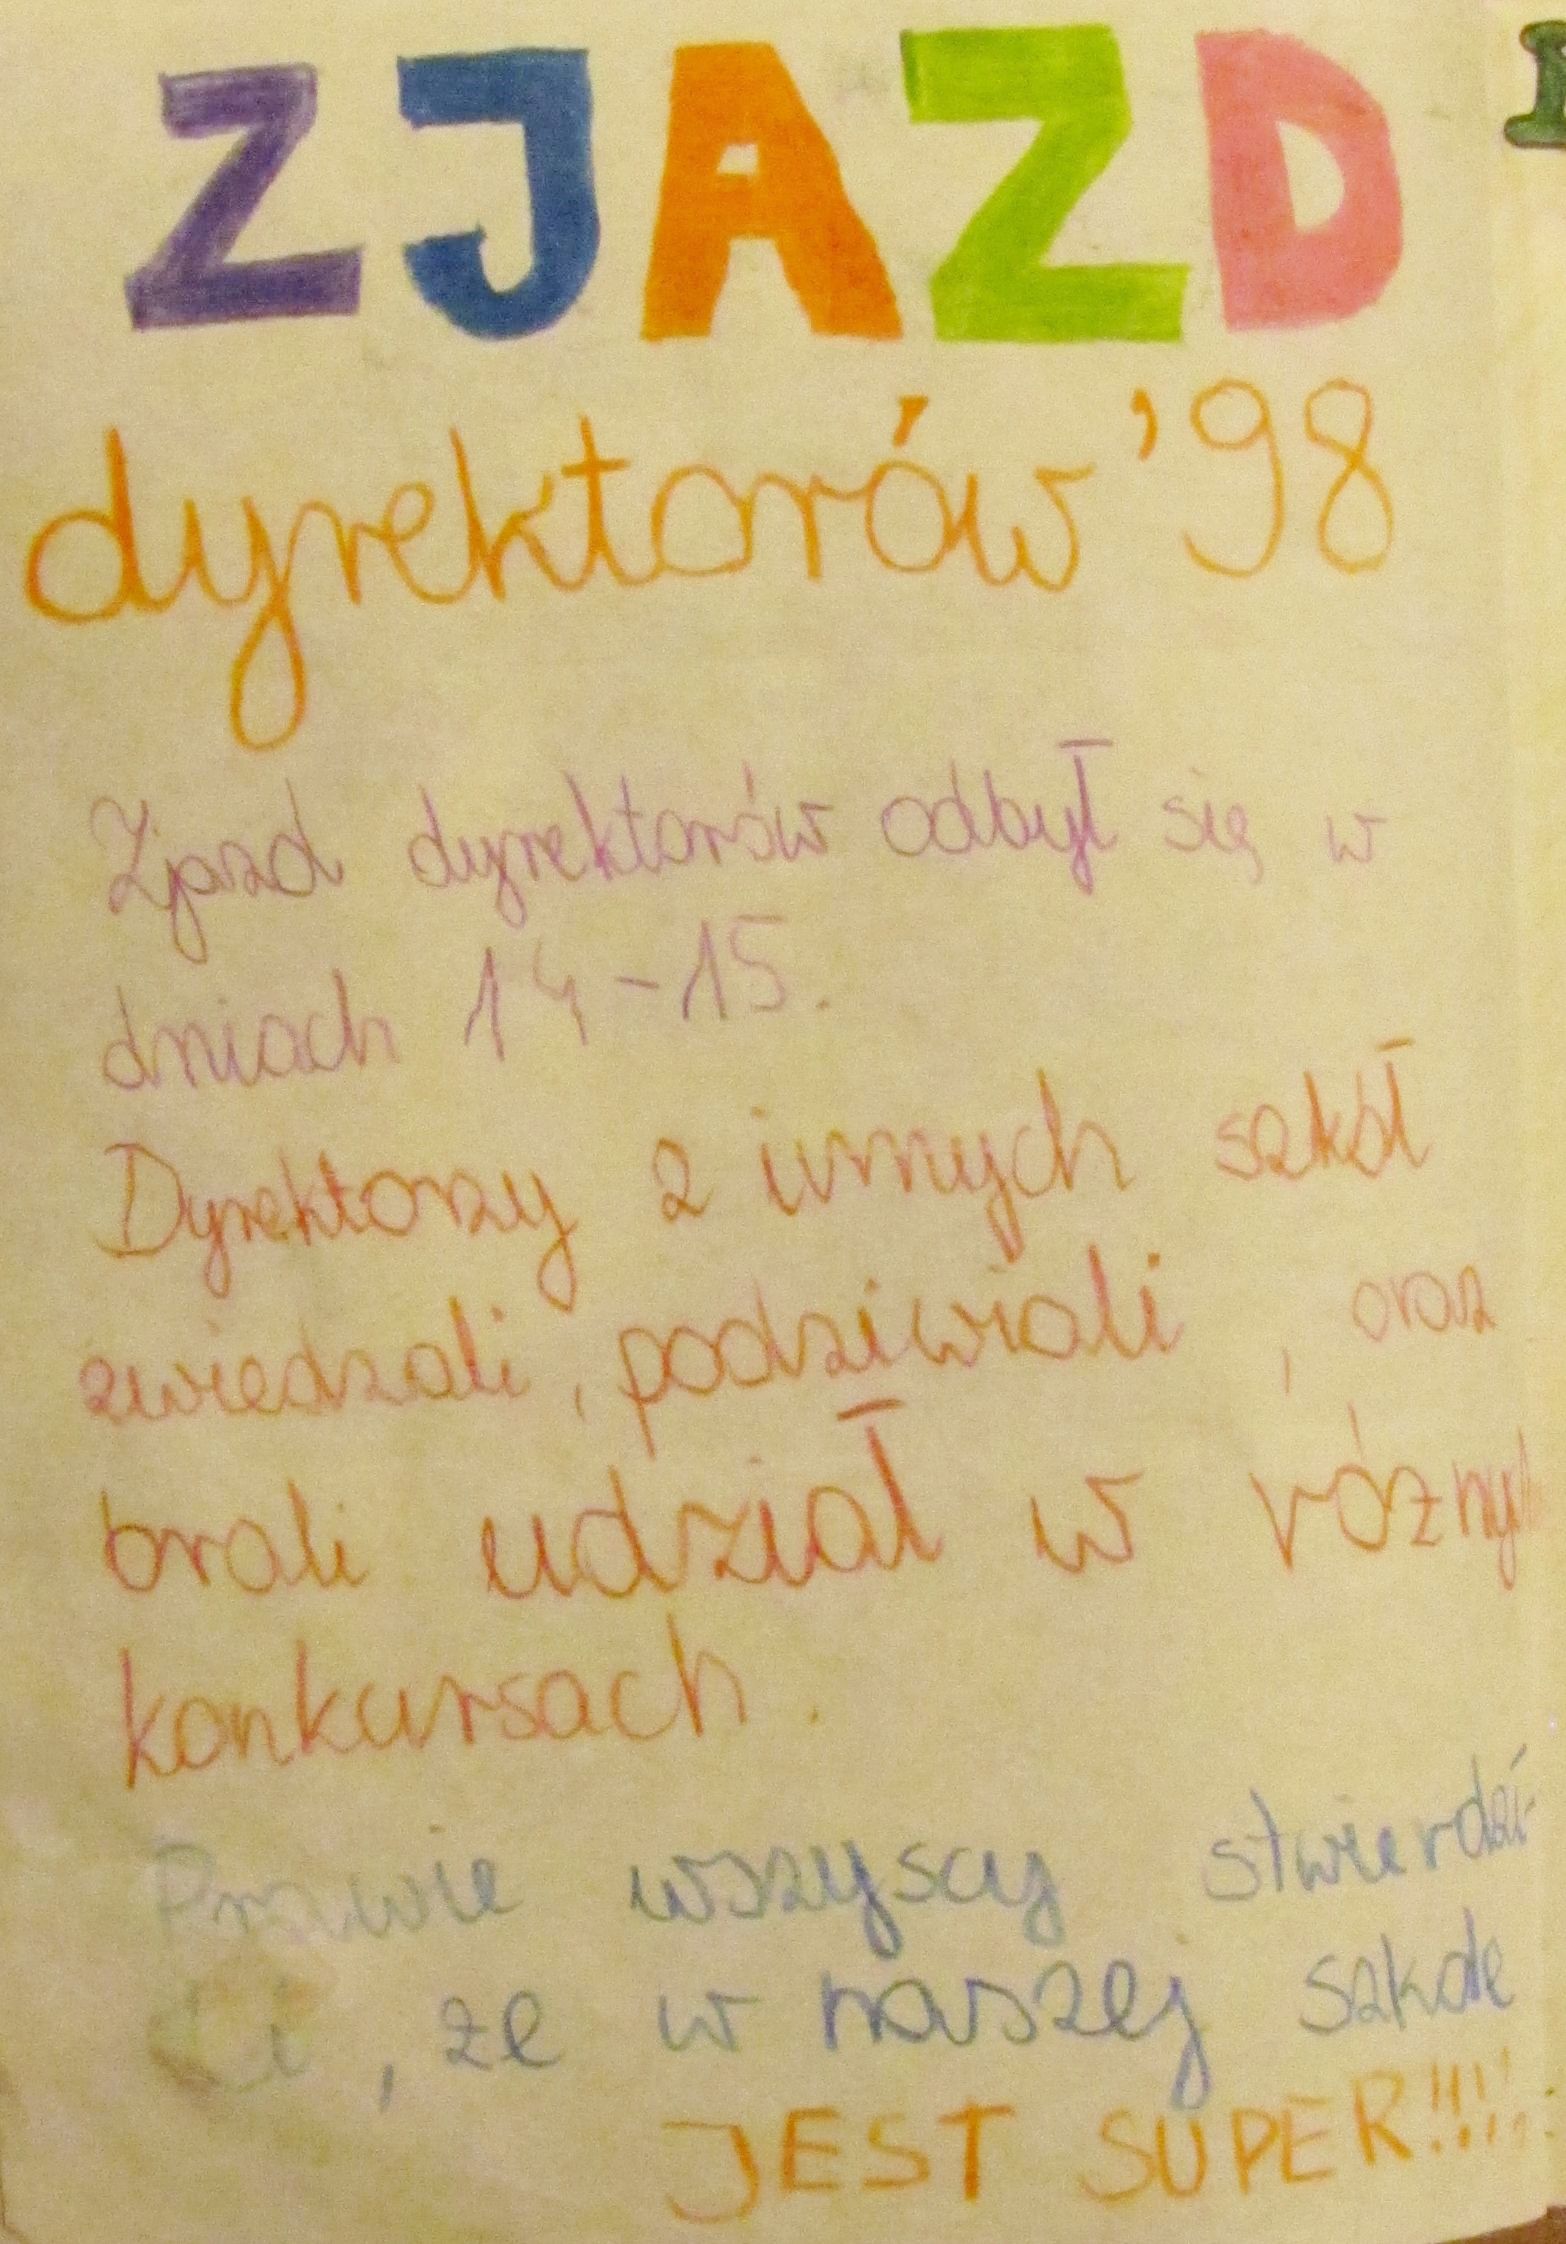 ZJAZD
dyrektorów '98
Zjazd dyrektorów odbył się w
dniach 14-15.
Dyrektorzy z innych szkół
zwiedzali, podziwiali, oraz
brali udział w różny
konkursach.
Prawie wszyscy stwierdzi-
li, że w naszej szkole
JEST SUPER!!!!!